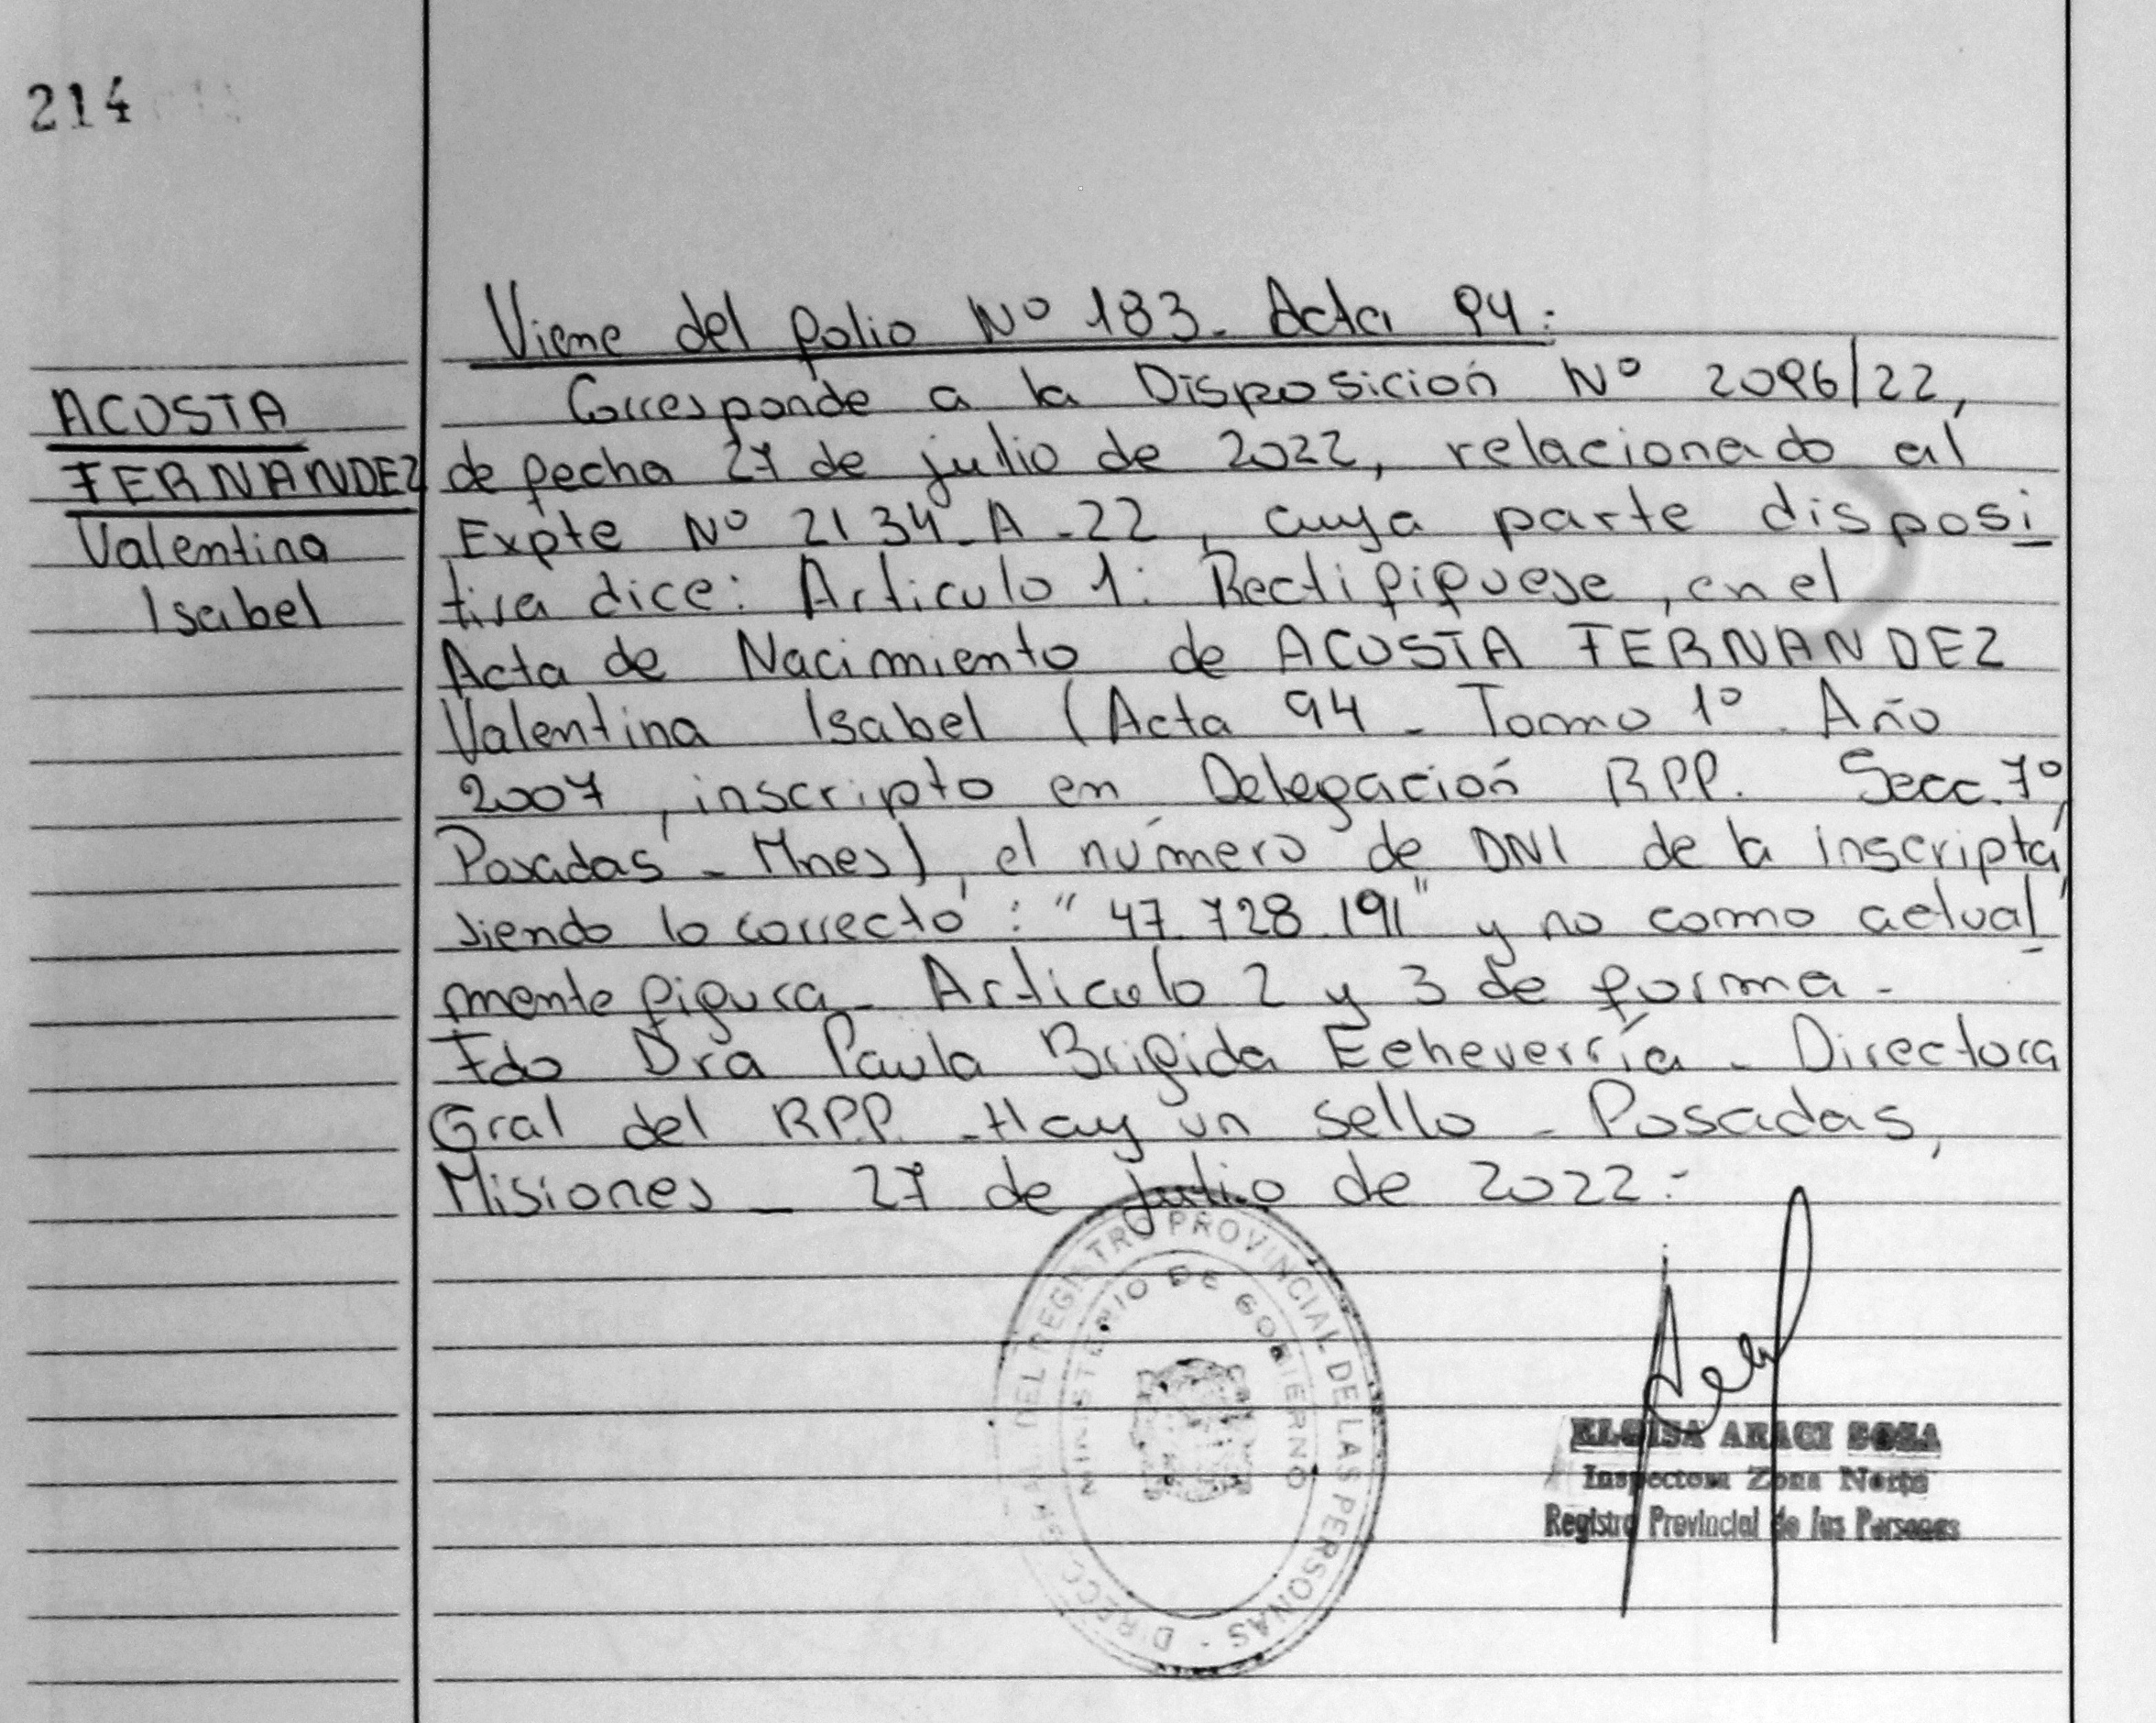 214
ACOSTA
FERNANDEZ
Valentina
Isabel
Viene del folio Nº 183. Acta 94:
Corresponde a la Disposición Nº 2096/22,
de fecha 27 de julio de 2022, relacionado al
Expte Nº 2134-A-22, cuya parte disposi
tiva dice: Articulo 1: Rectifiquese, en el
Acta de Nacimiento de ACOSTA FERNANDEZ
Valentina Isabel (Acta 94 - Tomo 1º Año
2007, inscripto en Delegación RPP. Secc. 7º,
Posadas - Mnes), el número de DNI de la inscripta,
siendo lo correcto: "47.728.191" y no como actual
mente figura - Articulo 2 y 3 de forma -
Fdo Dra Paula Brigida Echeverría - Directora
Gral del RPP. - Hay un sello - Posadas,
Misiones - 27 de julio de 2022:-
DEL REGISTRO PROVINCIAL DE LAS PERSONAS
MINISTERIO DE GOBIERNO
ELOISA ARACI SOSA
Inspectora Zona Norte
Registro Provincial de las Personas